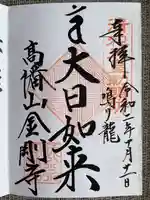 奉拝 令和二年十月十一日
鳴り龍
大日如来
高幡山 金剛寺